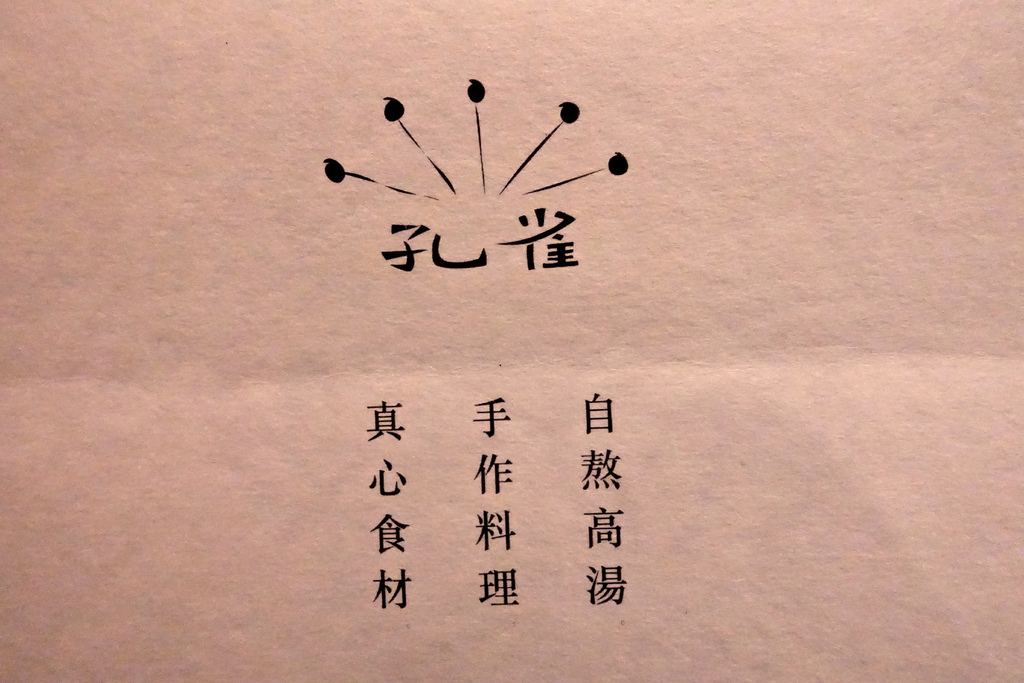 孔雀
自熬高湯
手作料理
真心食材